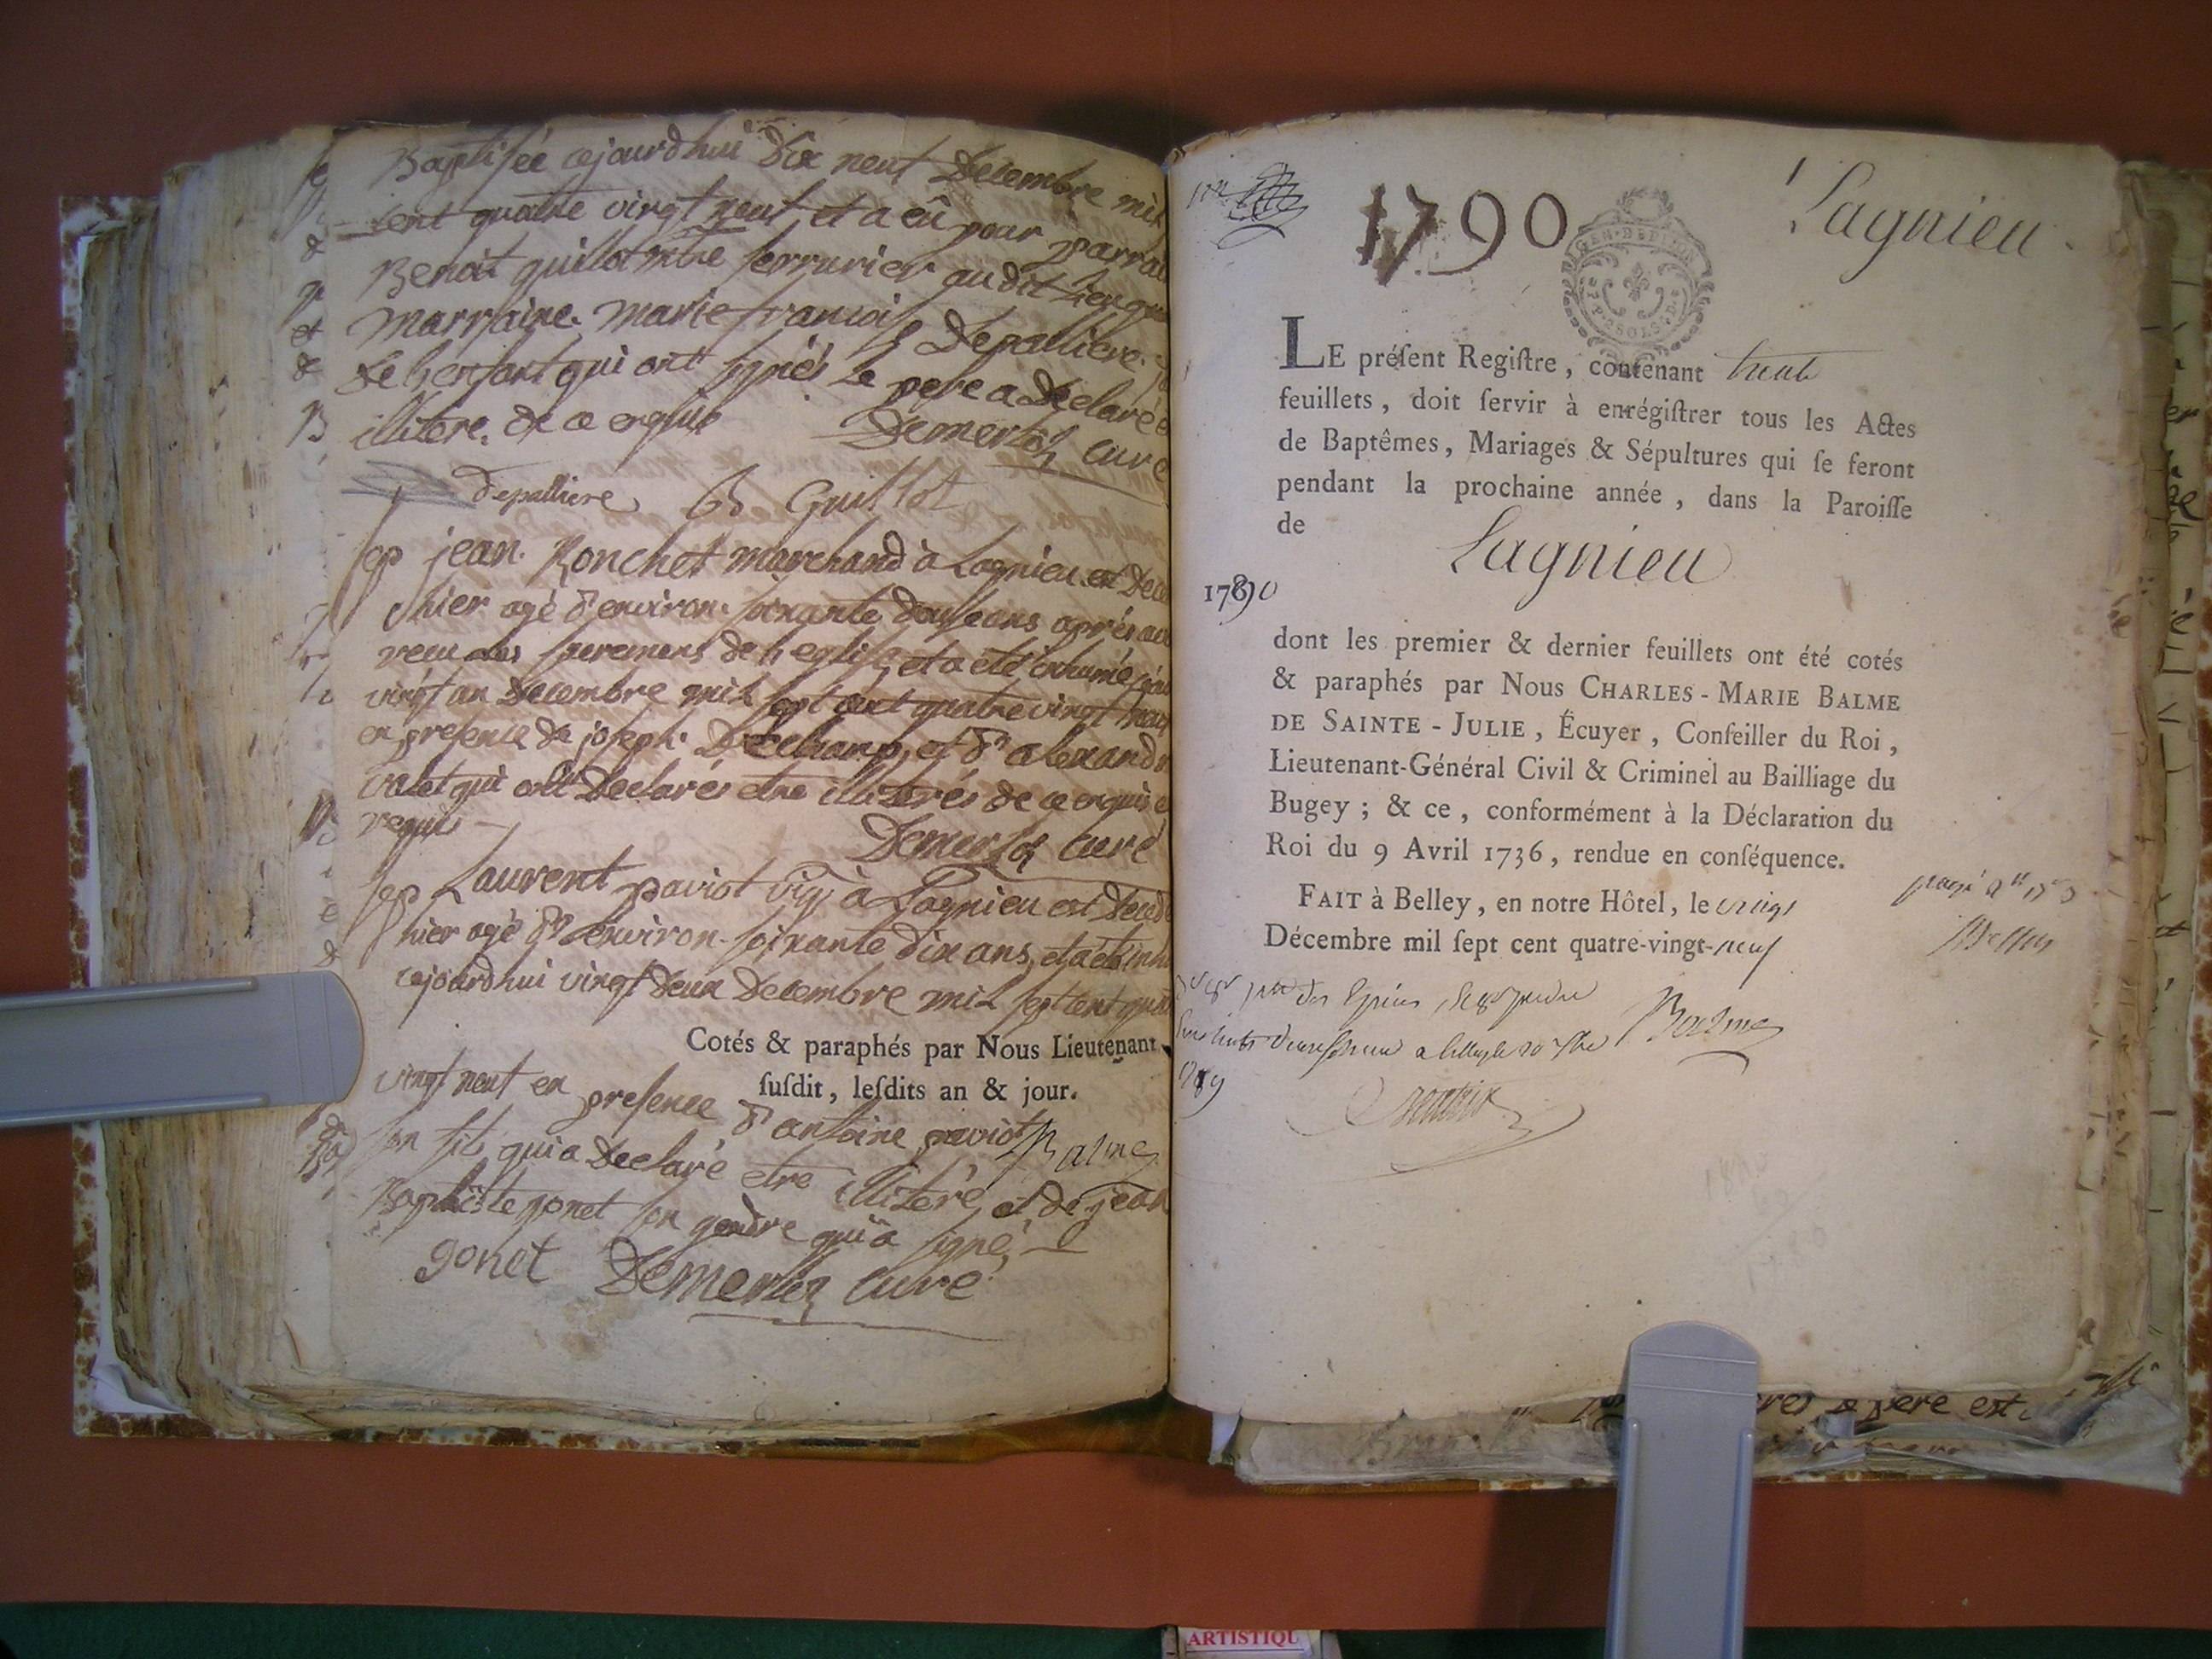 Baptisée cejourdhui dix neuf Decembre mil
cent quatre vingt neuf et a eû pour parrai
Benoit guillot mtre serrurier audit lieu
marraine marie francoise Depalliere
de lenfant qui ont signés le pere a Declaré
illitere de ce enquis Demerloz curé
depalliere B Guillot
sep jean Ronchet marchand à Lagnieu est Dece
hier agé d'environ soixante douse ans aprés
recu les sacremens de l'eglise, et a été inhumé
vingt un Decembre mil sept cent quatre vingt neuf
en presence de joseph Dechamp, et d'alexandre
valet qui ont Declarés etre illiterés de ce enquis
requis
Demerloz curé
sep Laurent paviot vig à Lagnieu est Decedé
hier agé d'environ soixante dix ans, et a été inh
cejourdhui vingt deux Decembre mil sept cent quat
Cotés & paraphés par Nous Lieutenant
susdit, lesdits an & jour.
vingt neuf en presence d'antoine paviot
Balme
son fils qui a Declaré etre illiteré, et de jean
Baptiste gonet son gendre qui a signé
gonet Demerloz curé
1790
1
Lagnieu
GEN. DE DIJON
LE présent Registre, contenant trente
feuillets, doit servir à enrégistrer tous les Actes
de Baptêmes, Mariages & Sépultures qui se feront
pendant la prochaine année, dans la Paroisse
de
Lagnieu
1790
dont les premier & dernier feuillets ont été cotés
& paraphés par Nous CHARLES-MARIE BALME
DE SAINTE-JULIE, Écuyer, Conseiller du Roi,
Lieutenant-Général Civil & Criminel au Bailliage du
Bugey; & ce, conformément à la Déclaration du
Roi du 9 Avril 1736, rendue en conséquence.
FAIT à Belley, en notre Hôtel, le vingt
Décembre mil sept cent quatre-vingt-neuf
Balme
res, le pere est
ARTISTIQU